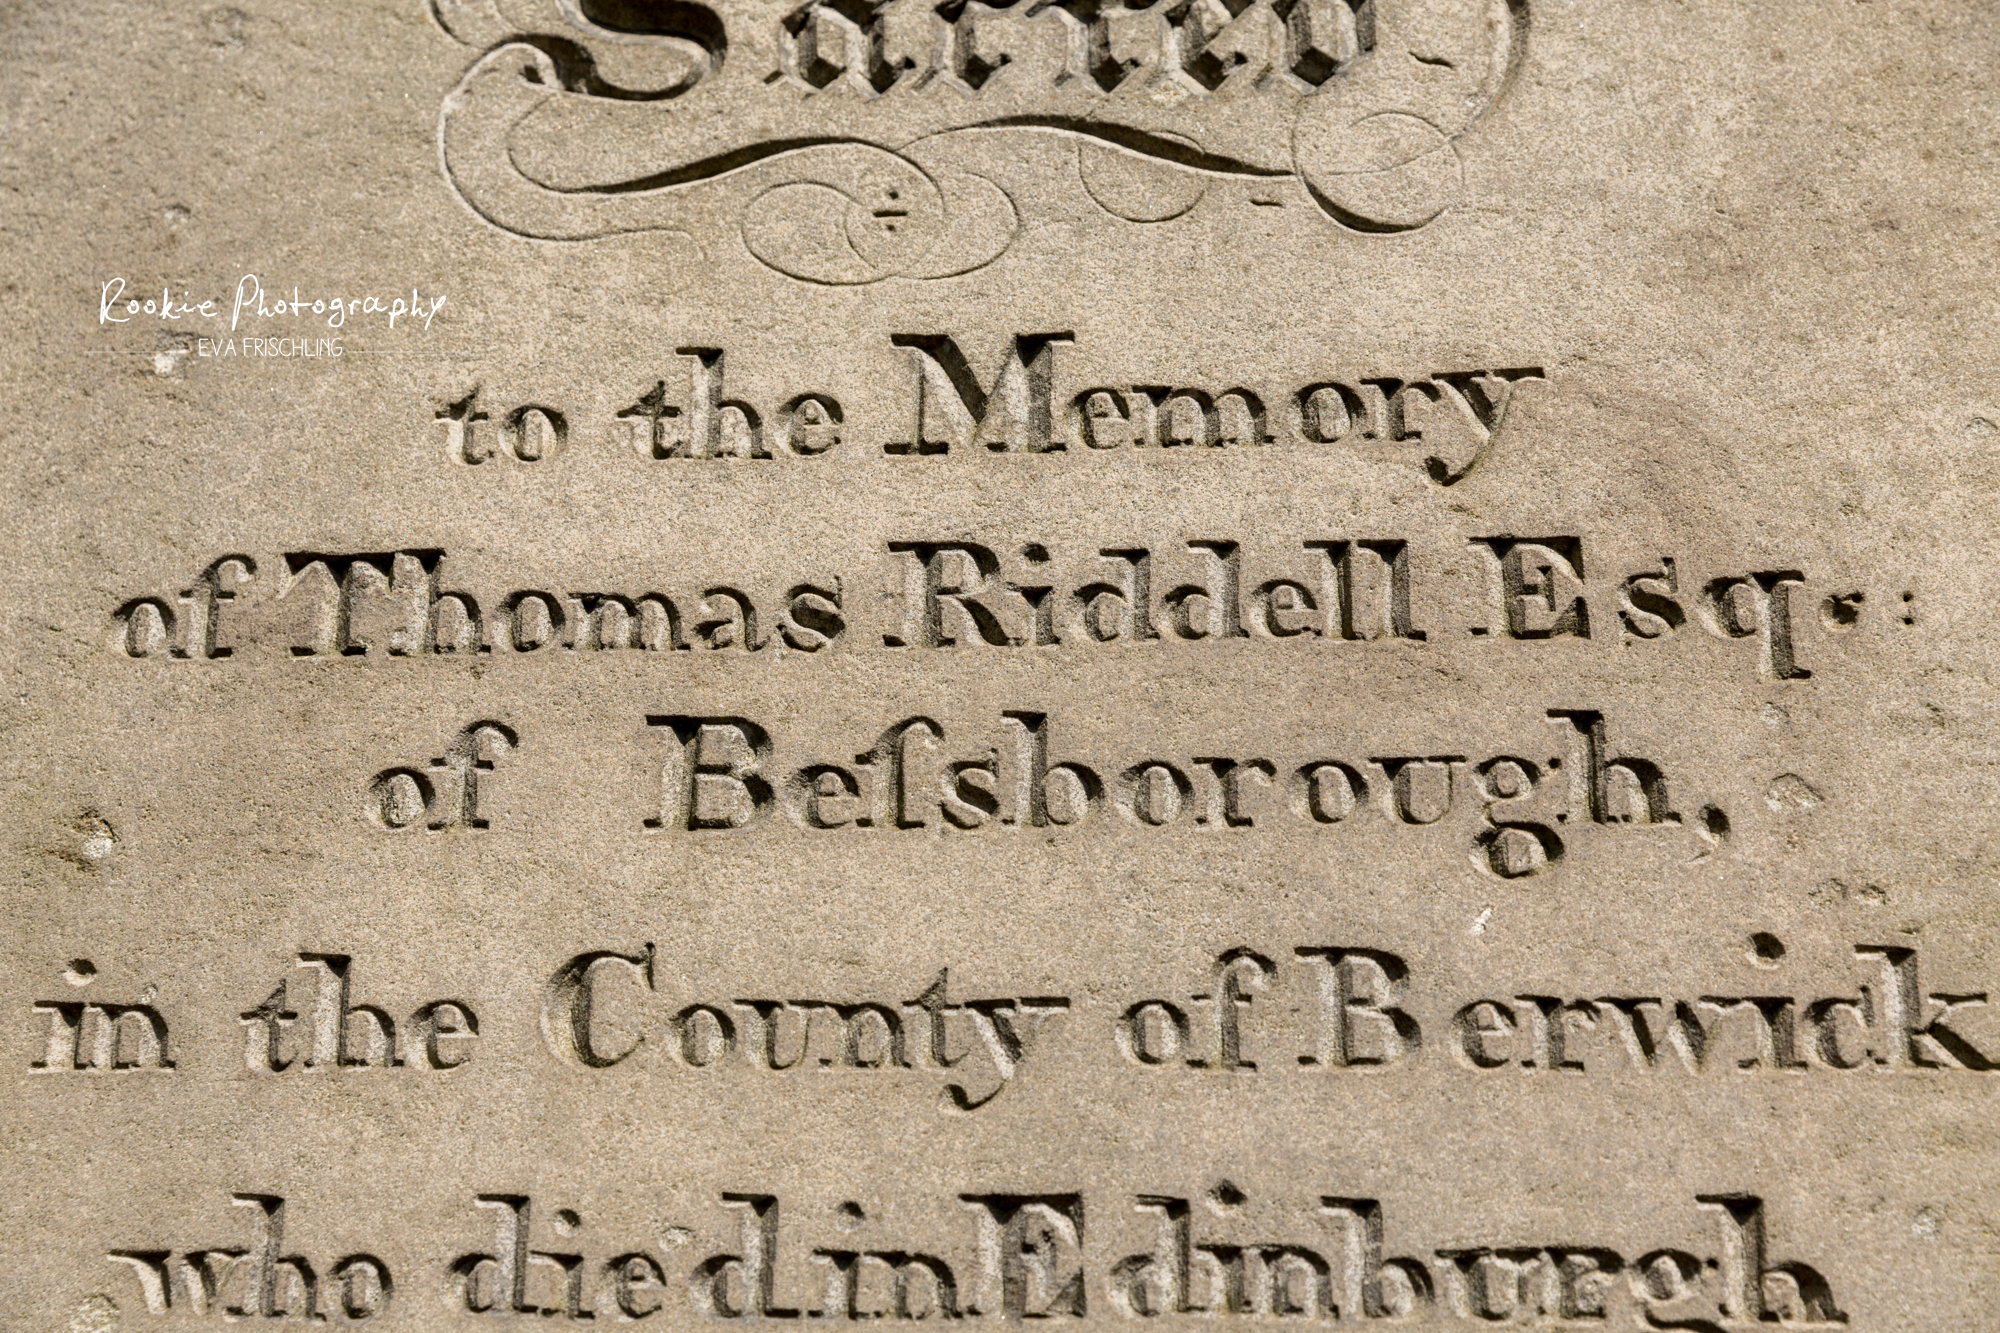 Sacred
Rookie Photography
EVA FRISCHLING
to the Memory
of Thomas Riddell Esqr:
of Beſsborough,
in the County of Berwick
who died in Edinburgh